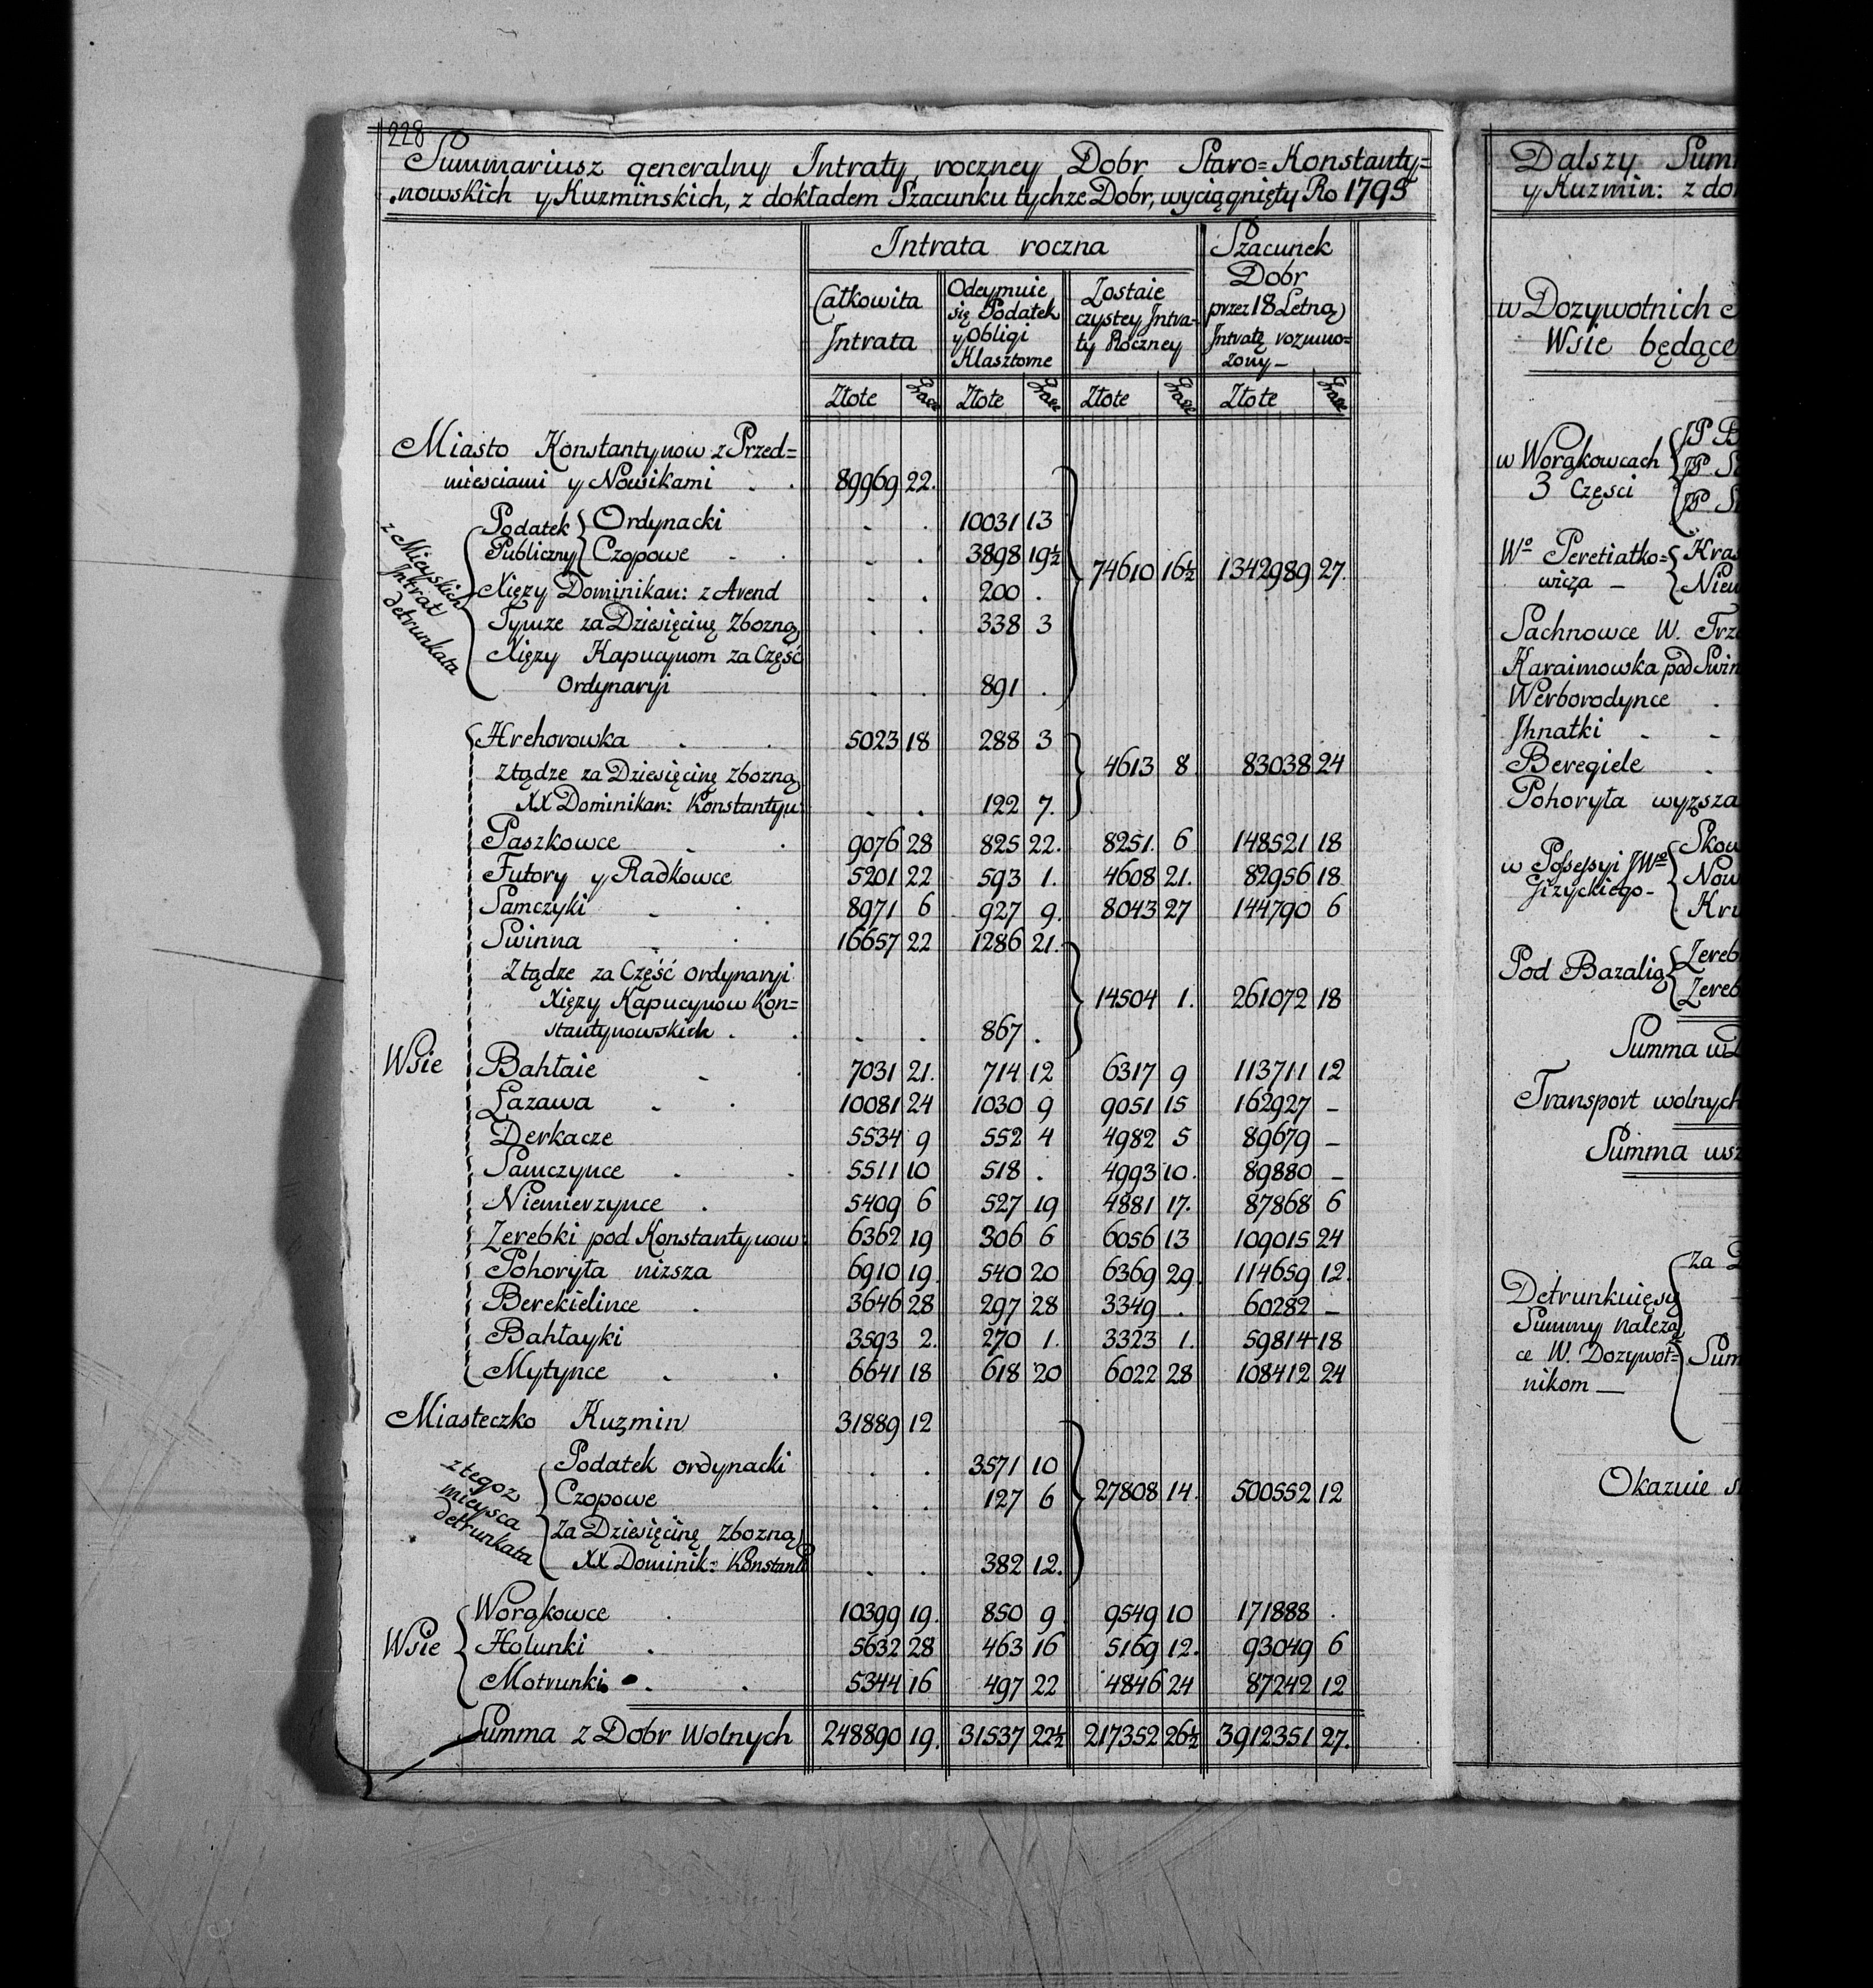 228
Summariusz generalny Intraty roczney Dobr Staro=Konstanty=
nowskich y Kuzminskich, z dokładem Szacunku tychze Dobr, wyciągnięty Ro 1795
Intrata roczna
Szacunek Dobr przez 18 Letną Intratę rozmno=zony_
Całkowita Intrata
Odeymuie się Podatek y Obligi Klasztorne
Zostaie czystey Intra=ty Roczney
Złote Grosze Złote Grosze Złote Grosze Złote Grosze
Miasto Konstantynow z Przed=
miesciami y Nowikami . . 89969 22.
z Mieyskich Intrat detrunkata
Podatek Publiczny
Ordynacki . . 10031 13
Czopowe - . . . 3898 19½
74610 16½ 1342989 27.
Xięzy Dominikan: z Arend . . 200 .
Tymze za Dziesięcinę Zbozną . . 338 3
Xięzy Kapucynom za Część
Ordynaryi . . 891 .
Hrehorowka . . 5023 18 288 3
Ztądze za Dziesięcinę zbozną 4613 8 83038 24
XX Dominikan: Konstantyn: . . 122 7.
Paszkowce - . 9076 28 825 22. 8251. 6 148521 18
Futory y Radkowce 5201 22 593 1. 4608 21. 82956 18
Samczyki - . 8971 6 927 9. 8043 27 144790 6
Swinna - . 16657 22 1286 21.
Ztądze za Część ordynaryi
Xięzy Kapucynow Kon= 14504 1. 261072 18
stantynowskich . . . . 867 .
Wsie
Bahłaie - . 7031 21. 714 12 6317 9 113711 12
Łazawa - . 10081 24 1030 9 9051 15 162927 -
Derkacze 5534 9 552 4 4982 5 89679 -
Samczynce . . 5511 10 518 . 4993 10. 89880 -
Niemierzynce . 5409 6 527 19 4881 17. 87868 6
Zerebki pod Konstantynow: 6362 19 306 6 6056 13 109015 24
Pohoryła nizsza 6910 19. 540 20 6369 29. 114659 12.
Berekielince . 3646 28 297 28 3349 . 60282 -
Bahłayki 3593 2. 270 1. 3323 1. 59814 18
Mytynce . . 6641 18 618 20 6022 28 108412 24
Miasteczko Kuzmin 31889 12
z tegoz mieysca detrunkata
Podatek ordynacki . . 3571 10
Czopowe . . 127 6 27808 14. 500552 12
Za Dziesięcinę zbozną
XX Dominik: Konstant . . 382 12.
Wsie
Worąkowce . 10399 19. 850 9 9549 10 171888 .
Hołunki . 5632 28 463 16 5169 12. 93049 6
Motrunki . . 5344 16 497 22 4846 24 87242 12
Summa z Dobr Wolnych 248890 19. 31537 22½ 217352 26½ 3912351 27.
Dalszy
y Kuzmin: z
w Dozywotnich
Wsie będące
w Worąkowcach
3 Częsci
JP
JP
JP
Wo Peretiatko=
wicza -
Sachnowce W.
Karaimowka pod
Werborodynce .
Jhnatki - -
Beregiele .
Pohoryła wyzsza
w Possessyi JWo
Gizyckiego -
Pod Bazalią
Summa
Transport wolnych
Summa
Detrunkuięsię
Summy należą
ce W. Dozywot=
nikom -
za
Okazuie